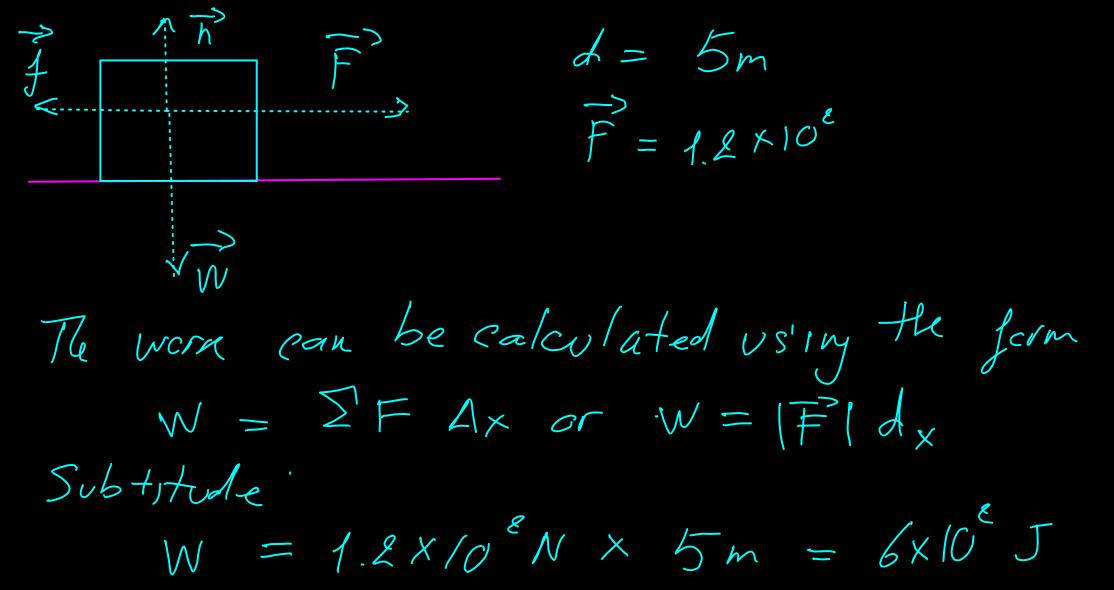 f⃗
n⃗
F⃗
W⃗
d = 5m
F⃗ = 1.2×10²
The work can be calculated using the form
W = ΣF Δx or W = |F⃗| dₓ
Substitude
W = 1.2×10² N × 5m = 6×10² J